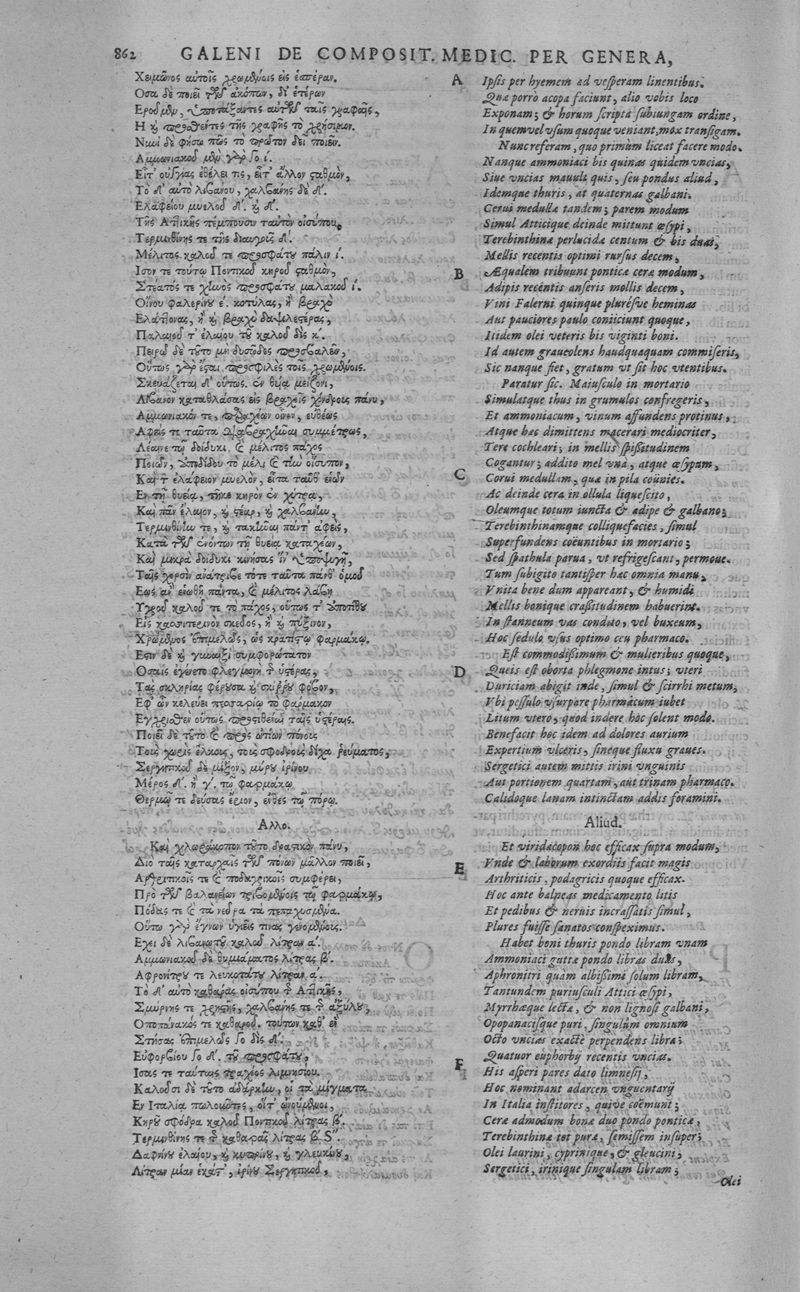 862 GALENI DE COMPOSIT. MEDIC. PER GENERA,
Χειμῶνος αὐτοῖς χρωμένοις εἰς ἑσπέραν.
Οσα δὲ ποιεῖ τῶν ἀκόπων, δι' ἑτέρων
Εροῦμεν, ὑποτάξαντες αὐτῶν ταῖς γραφαῖς,
Η καὶ προσθέντες τῆς γραφῆς τὸ χρήσιμον.
Νυνὶ δὲ φήσω πῶς τὸ πρῶτον δεῖ ποιεῖν.
Αμμωνιακοῦ μὲν γὰρ
Εἴτ' οὐγγίας ἐθέλει τις, εἴτ' ἄλλον σταθμὸν,
Τὸ δ' αὐτὸ λιβάνου, χαλβάνης δὲ δ'.
Ελαφείου μυελοῦ δ'. καὶ δ'.
Τῆς Αττικῆς πέμπουσιν ταὐτὸν οἰσύπου,
Τερμινθίνης τε τῆς διαυγοῦς
Μέλιτος καλοῦ τε προσφάτου πάλιν ί.
Ισον τε τούτῳ Ποντικοῦ κηροῦ σταθμὸν,
Στέατός τε χηνὸς προσφάτου μαλακοῦ ί.
Οἴνου φαλερίνου ε'. κοτύλας, ἢ βραχὺ
Ελάττονας, ἢ καὶ βραχὺ δαψιλεστέρας,
Παλαιοῦ τ' ἐλαίου τοῦ καλοῦ δὶς κ'.
Πειρῶ δὲ τοῦτο μὴ δυσῶδες προσβαλεῖν,
Οὕτως γὰρ ἔσται προσφιλὲς τοῖς χρωμένοις.
Σκευάζεται δ' οὕτως. ἐν θυίᾳ μείζονι,
Λίβανον καταθλάσας εἰς βραχεῖς χόνδρους πάνυ,
Αμμωνιακόν τε, προσχέων οἶνον, εὐθέως
Αφεὶς τε ταῦτα διαβραχῆναι συμμέτρως,
Λέαινε τῷ δοίδυκι, καὶ μέλιτος πάχος
Ποιῶν, ἐπιδίδου τὸ μέλι καὶ τὴν οἴσυπον,
Καὶ τὸν ἐλάφειον μυελὸν, εἶτα ταῦθ' ἑνῶν
Εν τῇ θυείᾳ, τῆκε κηρὸν ἐν χύτρᾳ,
Καὶ πᾶν ἔλαιον, καὶ στέαρ, καὶ χαλβάνην,
Τερμινθίνην τε, καὶ τακῆναι πάντ' ἀφεὶς,
Κατὰ τῶν ἑνόντων τῇ θυείᾳ καταχέων,
Καὶ μικρᾷ δοίδυκι κινήσας ἵν' ὑποψυγῇ,
Ταῖς χερσὶν ἀνάτριβε τότε ταῦτα πάνθ' ὁμοῦ
Εως ἂν ἑνωθῇ πάντα, καὶ μέλιτος λάβῃ
Υγροῦ καλοῦ τε τὸ πάχος, οὕτως τ' ἀποτίθου
Εἰς κασσιτέρινον σκεῦος, ἢ καὶ πύξινον,
Χρώμενος ἐπιμελῶς, ὡς κρατίστῳ φαρμάκῳ.
Εστιν δὲ καὶ γυναιξὶ συμφορώτατον
Οσαις ἐγένετο φλεγμονὴ τῆς ὑστέρας,
Τὰς σκληρίας φέρουσα καὶ σκίρρου φόβον,
Εφ' ὧν κελεύει πεσσαρίῳ τὸ φάρμακον
Εγχρισθὲν οὕτως προστιθέναι ταῖς ὑστέραις.
Ποιεῖ δὲ τοῦτο καὶ πρὸς ὤτων πόνους
Τοὺς χωρὶς ἕλκους, τοὺς σφοδροὺς δίχα ῥεύματος,
Σεργητικοῦ δὲ μίξον, μύρου ἰρίνου
Μέρος δ'. ἢ γ'. τῷ φαρμάκῳ.
Θερμῷ τε δεύσας ἔριον, ἔνθες τῷ πόρῳ.
Αλλο.
Καὶ χλωράκοπον τοῦτο δραστικὸν πάνυ,
Διὸ ταῖς καταρχαῖς τῶν πόνων μᾶλλον ποιεῖ,
Αρθριτικοῖς τε καὶ ποδαγρικοῖς συμφέρει,
Πρὸ τῶν βαλανείων τριβομένοις τῷ φαρμάκῳ,
Πόδας τε καὶ τὰ νεῦρα τὰ πεπαχυσμένα.
Οὕτω γὰρ ἔγνων ὑγιεῖς τινας γενομένους.
Εχει δὲ λιβανωτοῦ καλοῦ λίτραν α'.
Αμμωνιακοῦ δὲ θυμιάματος λίτρας β'.
Αφρονίτρου τε λευκοτάτου λίτραν α'.
Τὸ δ' αὐτὸ καθαρᾶς οἰσύπου τῆς Αττικῆς,
Σμύρνης τε χρηστῆς, χαλβάνης τε τῆς ἀξύλου,
Οποπάνακός τε καθαροῦ. τούτων καθ' ἓν
Στήσας ἐπιμελῶς
Εὐφορβίου τοῦ προσφάτου,
Ισας τε ταύταις τραχέος λιμνησίου.
Καλοῦσι δὲ τοῦτο ἀδάρκην, οἱ τὰ μίγματα
Εν Ιταλίᾳ πωλοῦντες, οἵτ' ὠνούμενοι,
Κηροῦ σφόδρα καλοῦ Ποντικοῦ λίτρας β'.
Τερμινθίνης τε τῆς καθαρᾶς λίτρας β. S''.
Δαφνίνου ἐλαίου, καὶ κυπρίνου, καὶ γλευκίνου,
Λίτραν μίαν ἑκάστ', ἰρίνου Σεργητικοῦ,
A Ipsis per hyemem ad vesperam linentibus.
Quæ porro acopa faciunt, alio vobis loco
Exponam; & horum scripta subiungam ordine,
In quem vel vsum quoque veniant, mox transigam.
Nunc referam, quo primùm liceat facere modo.
Nanque ammoniaci bis quinas quidem vncias,
Siue vncias mauult quis, seu pondus aliud,
Idemque thuris, at quaternas galbani.
Cerui medullæ tandem; parem modum
Simul Atticique deinde mittunt œsypi,
Terebinthinæ perlucidæ centum & bis duas,
Mellis recentis optimi rursus decem,
B Æqualem tribuunt ponticæ ceræ modum,
Adipis recentis anseris mollis decem,
Vini Falerni quinque pluresve heminas
Aut pauciores paulo coniiciunt quoque,
Itidem olei veteris bis viginti boni.
Id autem graueolens haudquaquam commiseris,
Sic nanque fiet, gratum vt sit hoc vtentibus.
Paratur sic. Maiusculo in mortario
Simulatque thus in grumulos confregeris,
Et ammoniacum, vinum affundens protinus,
Atque hæc dimittens macerari mediocriter,
Tere cochleari; in mellis spissitudinem
Cogantur; addito mel vna, atque œsypum,
C Corui medullam, quæ in pila coünies.
Ac deinde cera in ollula liquescito,
Oleumque totum iuncta & adipe & galbano;
Terebinthinamque colliquefacies, simul
Superfundens coëuntibus in mortario;
Sed spathula parua, vt refrigescant, permoue.
Tum subigito tantisper hæc omnia manu,
Vnita bene dum appareant, & humidi
Mellis bonique crassitudinem habuerint.
In stanneum vas condito, vel buxeum,
Hoc sedulo vsus optimo ceu pharmaco.
Est commodissimum & mulieribus quoque,
D Queis est oborta phlegmone intus; vteri
Duriciam abigit inde, simul & scirrhi metum,
Vbi pessulo vsurpare pharmacum iubet
Litum vtero, quod indere hoc solent modo.
Benefacit hoc idem ad dolores aurium
Expertium vlceris, sineque fluxu graues.
Sergetici autem mittis irini vnguinis
Aut portionem quartam, aut trinam pharmaco.
Calidoque lanam intinctam addis foramini.
Aliud.
Et viridacopon hoc efficax supra modum,
E Vnde & laborum exordiis facit magis
Arthriticis, podagricis quoque efficax.
Hoc ante balneas medicamento litis
Et pedibus & neruis incrassatis simul,
Plures fuisse sanatos conspeximus.
Habet boni thuris pondo libram vnam
Ammoniaci guttæ pondo libras duas,
Aphronitri quàm albissimi solum libram,
Tantundem puriusculi Attici œsypi,
Myrrhæque lectæ, & non lignosi galbani,
Opopanacisque puri, singulûm omnium
Octo vncias exactè perpendens libra;
Quatuor euphorbij recentis vncias.
F His asperi pares dato limnesij,
Hoc nominant adarcen vnguentarij
In Italia institores, quive coëmunt;
Ceræ admodum bonæ duo pondo ponticæ,
Terebinthinæ tot puræ, semissem insuper;
Olei laurini, cyprinique, & gleucini,
Sergetici, irinique singulam libram;
Olei